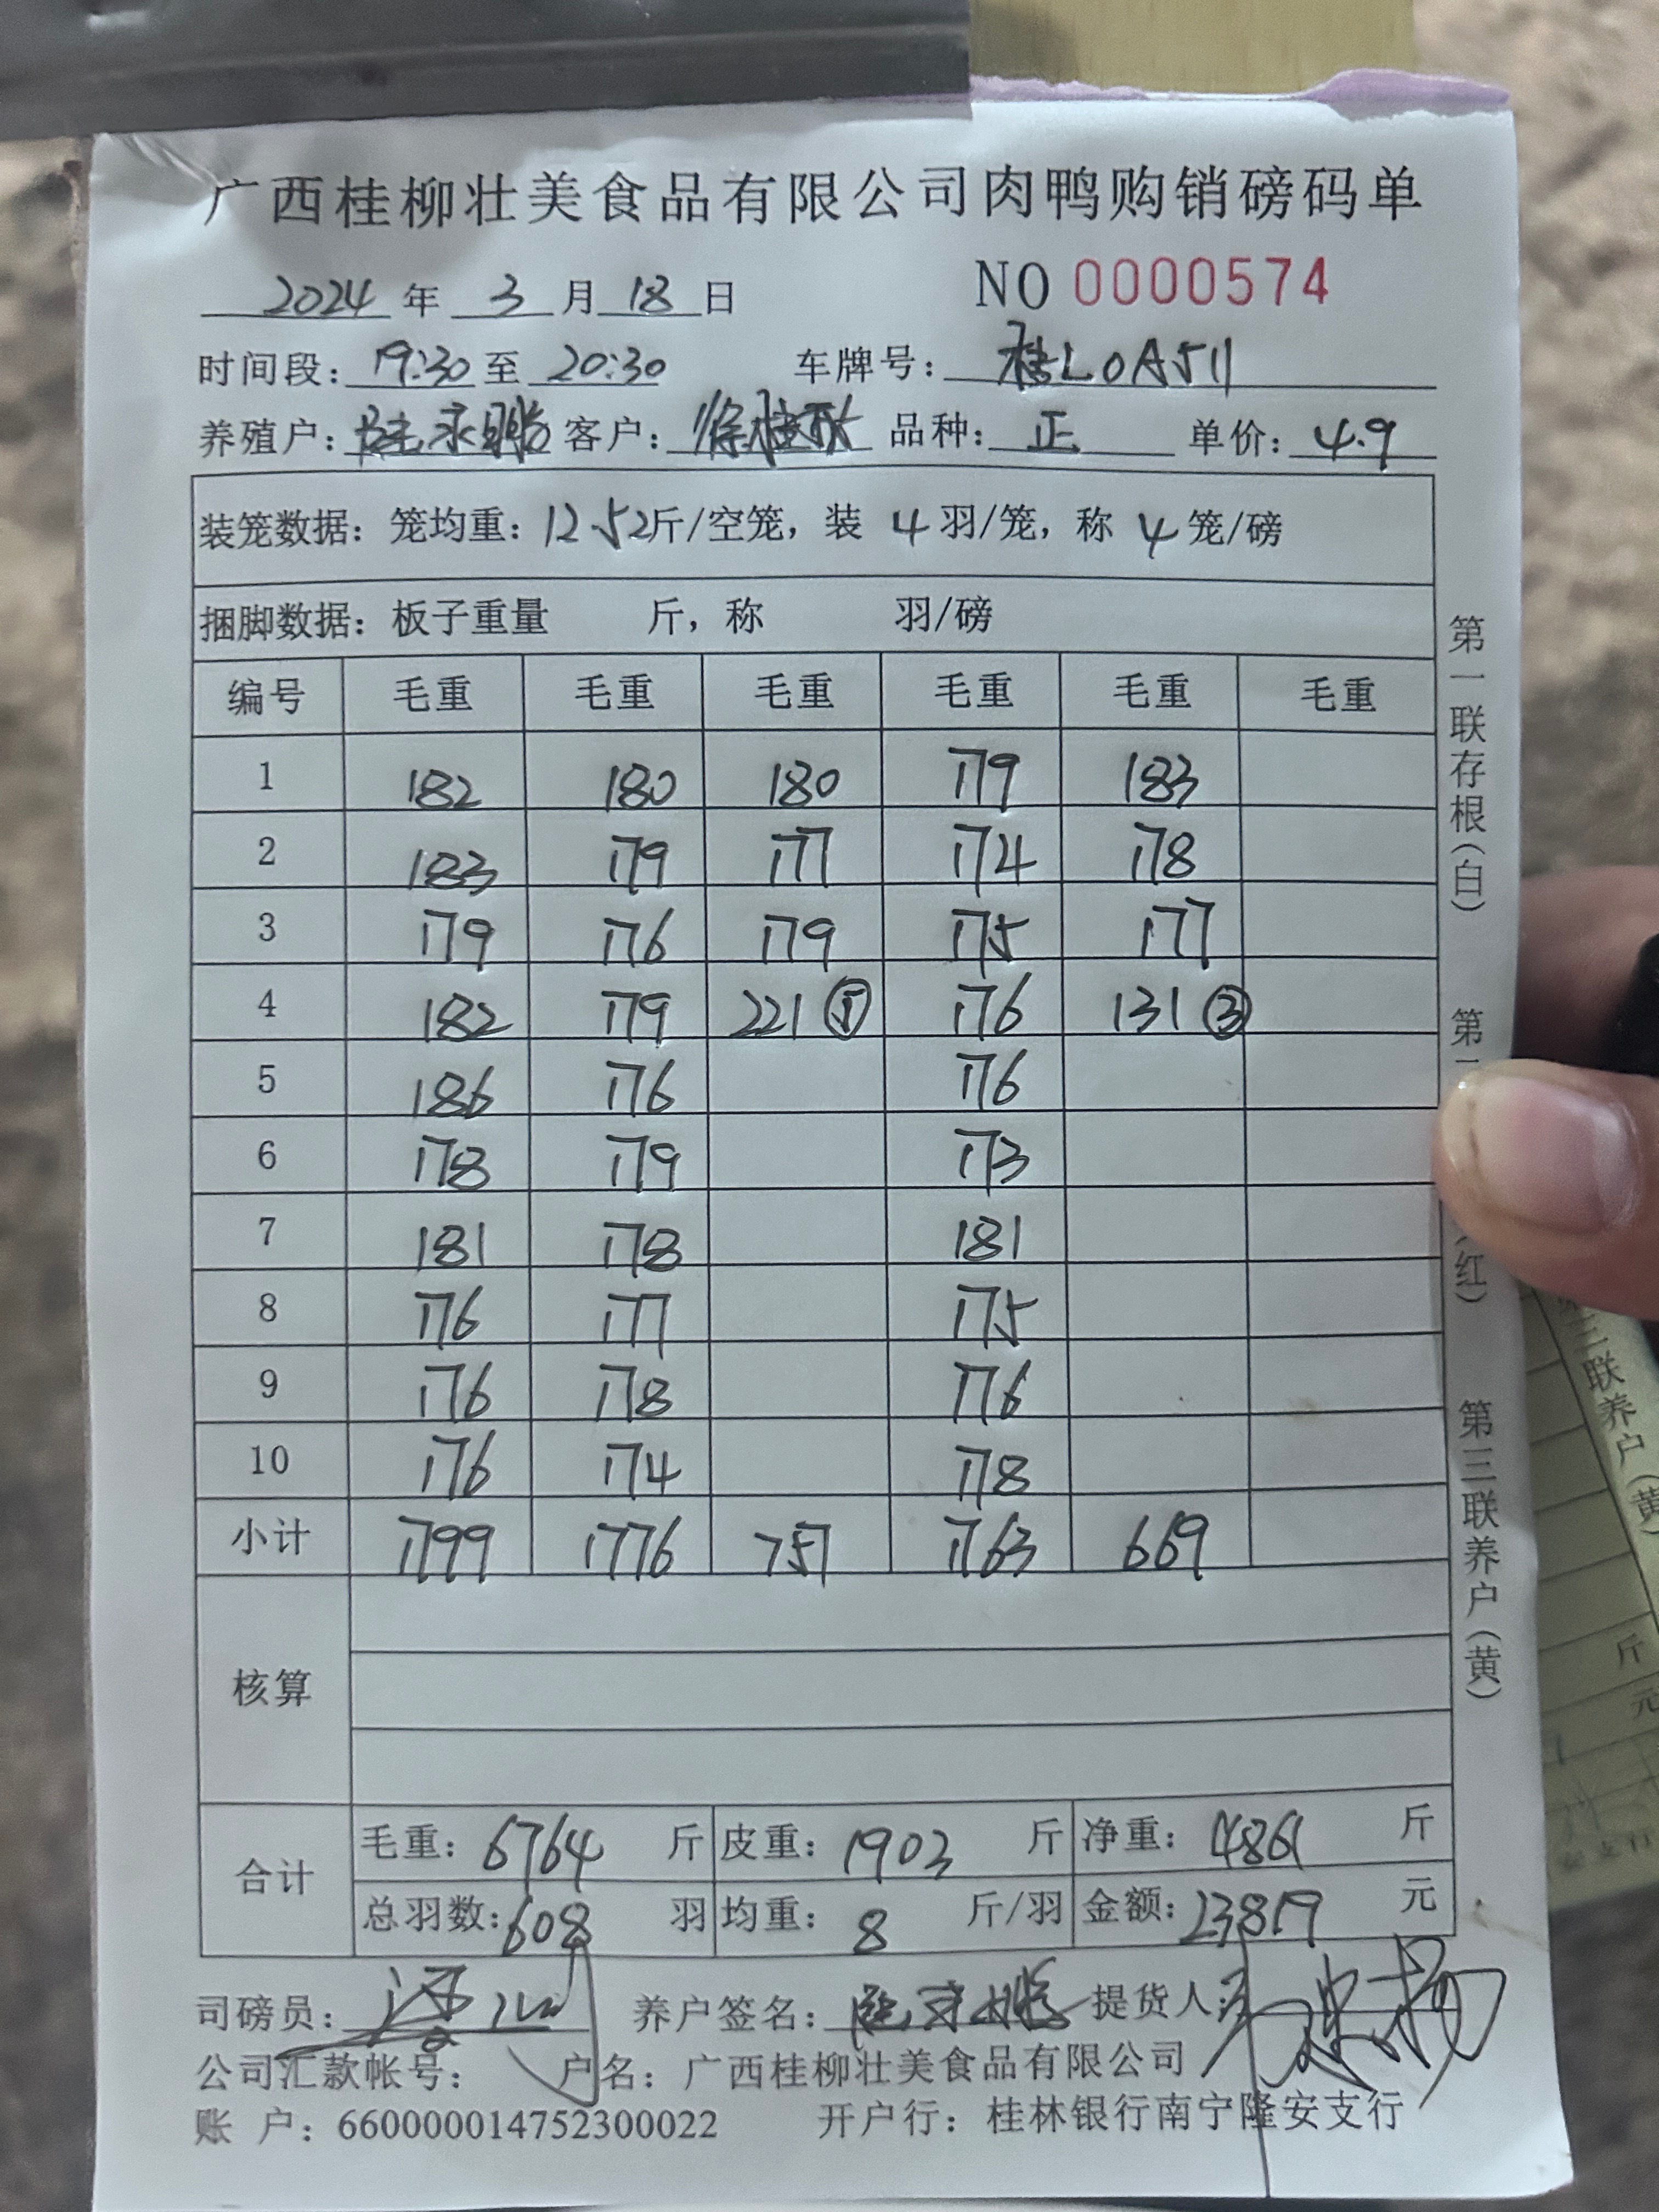 广西桂柳壮美食品有限公司肉鸭购销磅码单
2024 年 3 月 18 日 NO 0000574
时间段: 19:30 至 20:30 车牌号: 桂L0A511
养殖户: 客户: 徐桂 品种: 正 单价: 4.9
装笼数据: 笼均重: 12.52斤/空笼, 装 4 羽/笼, 称 4 笼/磅
捆脚数据: 板子重量 斤, 称 羽/磅
编号 毛重 毛重 毛重 毛重 毛重 毛重
1 182 180 180 179 183
2 183 179 177 174 178
3 179 176 179 175 177
4 182 179 221⑤ 176 131③
5 186 176 176
6 178 179 173
7 181 178 181
8 176 177 175
9 176 178 176
10 176 174 178
小计 1799 1776 757 1763 669
核算
合计 毛重: 6764 斤 皮重: 1903 斤 净重: 4861 斤
总羽数: 608 羽 均重: 8 斤/羽 金额: 23819 元
司磅员: 养户签名: 提货人:
公司汇款帐号: 户名: 广西桂柳壮美食品有限公司
账 户: 660000014752300022 开户行: 桂林银行南宁隆安支行
第一联存根(白)
第 (红)
第三联养户(黄)
三联养户(黄)
斤
元
支行